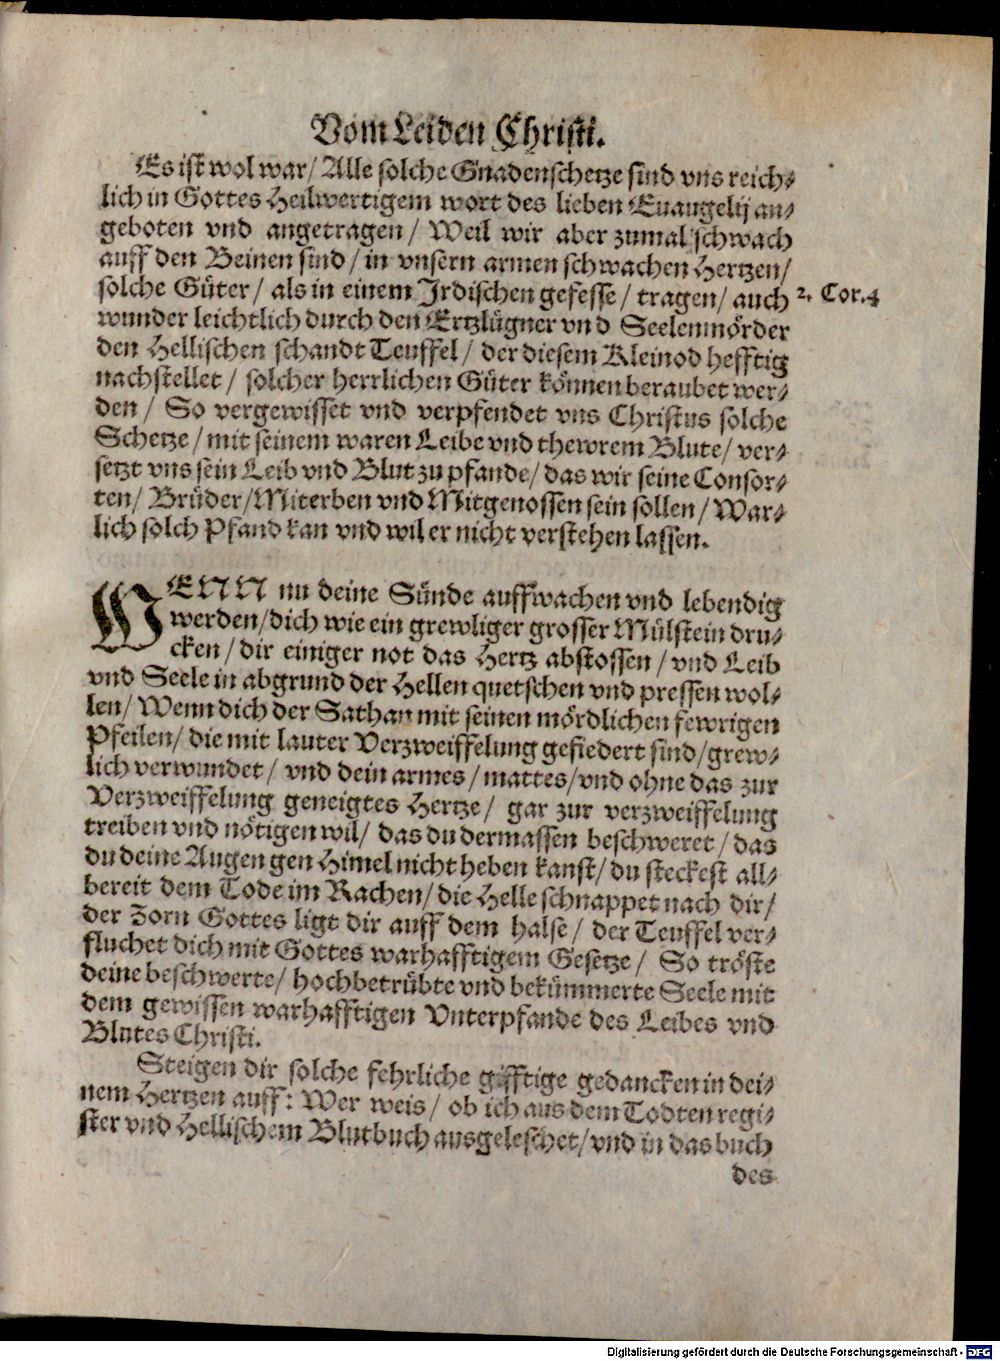 Vom Leiden Christi.
Es ist wol war/ Alle solche Gnadenschetze sind vns reich-
lich in Gottes Heilwertigem wort des lieben Euangelij an-
geboten vnd angetragen/ Weil wir aber zumal schwach
auff den Beinen sind/ in vnsern armen schwachen Hertzen/
solche Güter/ als in einem Irdischen gefesse/ tragen/ auch 2. Cor. 4
wunder leichtlich durch den Ertzlügner vnd Seelenmörder
den Hellischen schandt Teuffel/ der diesem Kleinod hefftig
nachstellet/ solcher herrlichen Güter können beraubet wer-
den/ So vergewisset vnd verpfendet vns Christus solche
Schetze/ mit seinem waren Leibe vnd thewrem Blute/ ver-
setzt vns sein Leib vnd Blut zu pfande/ das wir seine Consor-
ten/ Brüder/ Miterben vnd Mitgenossen sein sollen/ War-
lich solch Pfand kan vnd wil er nicht verstehen lassen.
WENN nu deine Sünde auffwachen vnd lebendig
werden/ dich wie ein grewliger grosser Mülstein dru-
cken/ dir einiger not das Hertz abstossen/ vnd Leib
vnd Seele in abgrund der Hellen quetschen vnd pressen wol-
len/ Wenn dich der Sathan mit seinen mördlichen fewrigen
Pfeilen/ die mit lauter Verzweiffelung gefiedert sind/ grew-
lich verwundet/ vnd dein armes/ mattes/ vnd ohne das zur
Verzweiffelung geneigtes Hertze/ gar zur verzweiffelung
treiben vnd nötigen wil/ das du dermassen beschweret/ das
du deine Augen gen Himel nicht heben kanst/ du steckest all-
bereit dem Tode im Rachen/ die Helle schnappet nach dir/
der Zorn Gottes ligt dir auff dem halse/ der Teuffel ver-
fluchet dich mit Gottes warhafftigem Gesetze/ So tröste
deine beschwerte/ hochbetrübte vnd bekümmerte Seele mit
dem gewissen warhafftigen Vnterpfande des Leibes vnd
Blutes Christi.
Steigen dir solche fehrliche gifftige gedancken in dei-
nem Hertzen auff: Wer weis/ ob ich aus dem Todten regi-
ster vnd Hellischem Blutbuch ausgeleschet/ vnd in das buch
des
Digitalisierung gefördert durch die Deutsche Forschungsgemeinschaft - DFG